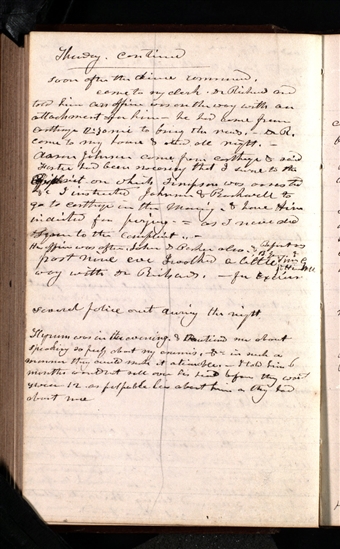 Thursday. continued
soon after the dinner commenced.
come to my clerk Dr Richard and
told him an officer was on the way with an
attachment for him - he had come from
carthage to bring the news. - Dr R.
come to my house & staid all night. -
Aaron Johnson came from carthage & said
Foster had been swearing that I swore to the
complaint on which Simpson was arrested
& I instructed Johnson & Rockwell to
go to carthage in the morning & have Him
indicted for perjury - as I never did
swear to the complaint. -
the officer was after John D. Parker also
past nine eve I walked a little
way with Dr Richards. - for Exercise
several police out during the night
Hyrum was in the evening. & cautioned me about
speaking so freely about my enemies, &c in such a
manner they could make it actionable. - I told him 6
months would not roll over his head before they would
swear 12 as palpable lies about him as they had
about me